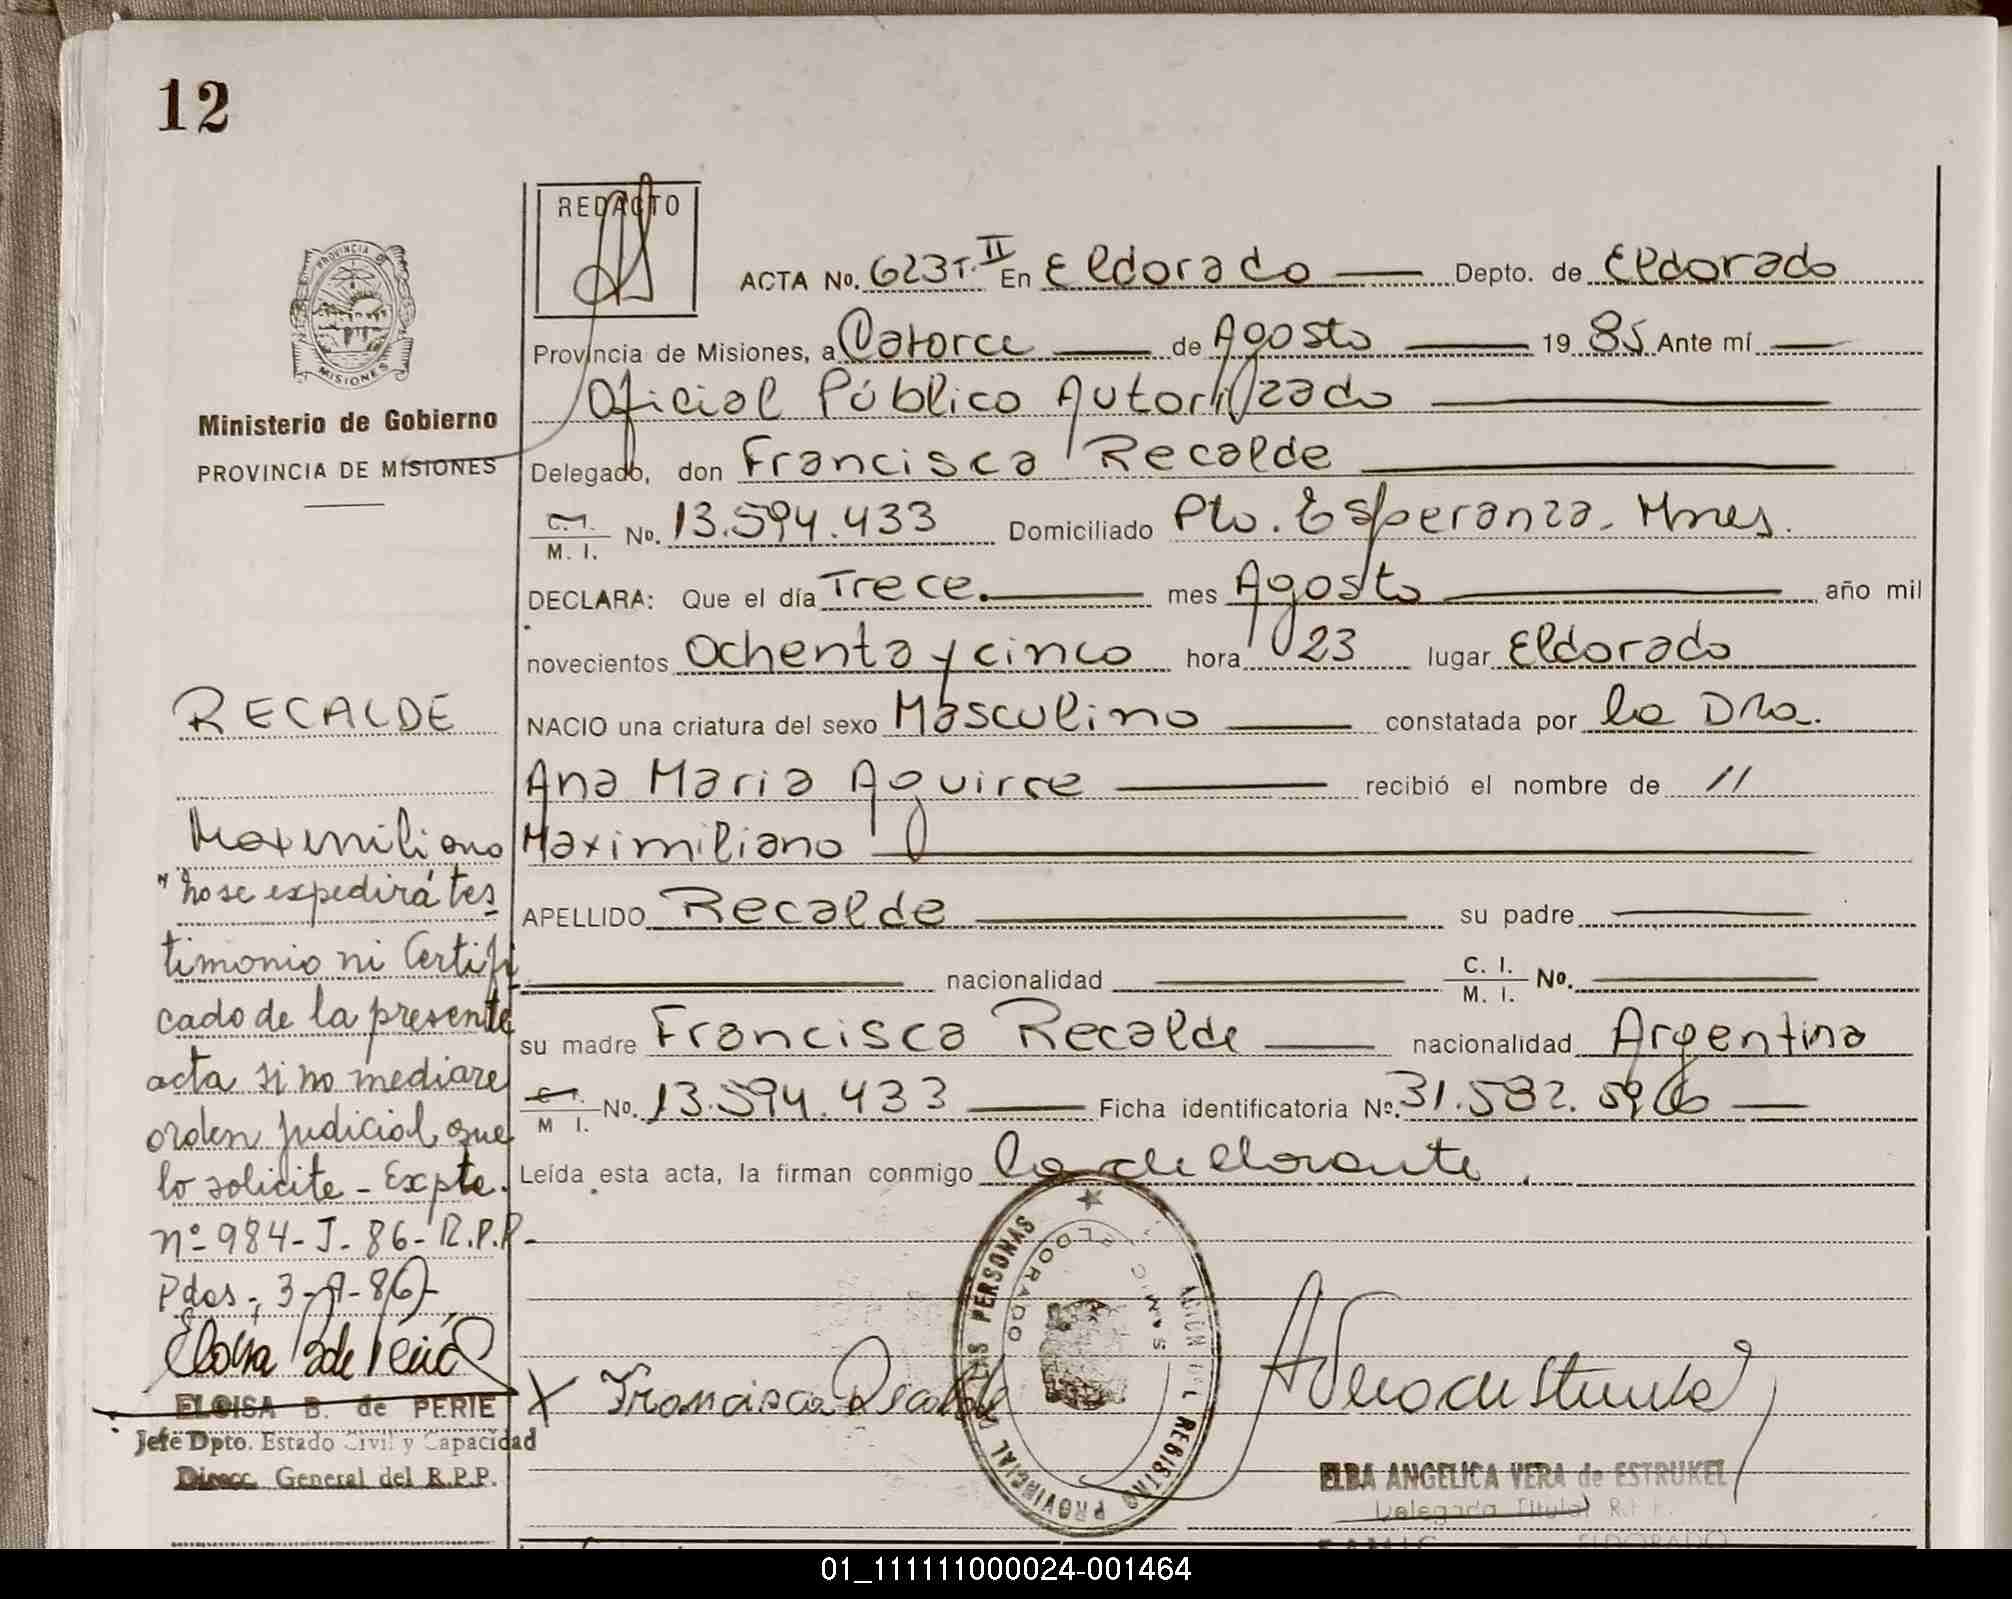 12
REDACTO
ACTA No. 623 T. II En Eldorado Depto. de Eldorado
Provincia de Misiones, a Catorce de Agosto 19 85 Ante mí
Oficial Público Autorizado
Delegado, don Francisca Recalde
C.I. / M. I. No. 13.594.433 Domiciliado Pto. Esperanza. Mnes.
DECLARA: Que el día Trece. mes Agosto año mil
novecientos Ochenta y cinco hora 23 lugar Eldorado
NACIO una criatura del sexo Masculino constatada por la Dra.
Ana Maria Aguirre recibió el nombre de //
Maximiliano
APELLIDO Recalde su padre
nacionalidad C. I. / M. I. No.
su madre Francisca Recalde nacionalidad Argentina
M I. No. 13.594.433 Ficha identificatoria No. 31.582.596
Leída esta acta, la firman conmigo la
Francisca Recalde
ELBA ANGELICA VERA de ESTRUKEL
Delegada Titular R.P.P.
ELDORADO
PROVINCIA DE
MISIONES
Ministerio de Gobierno
PROVINCIA DE MISIONES
RECALDE
Maximiliano
"no se expedirá tes
timonio ni Certifi
cado de la presente
acta si no mediare
orden judicial que
lo solicite - Expte.
nº 984-J-86-R.P.P.-
Pdas,
ELOISA B. de PERIE
Jefe Dpto. Estado Civil y Capacidad
Direcc. General del R.P.P.
REGISTRO PROVINCIAL DE LAS PERSONAS
ELDORADO
01_111111000024-001464